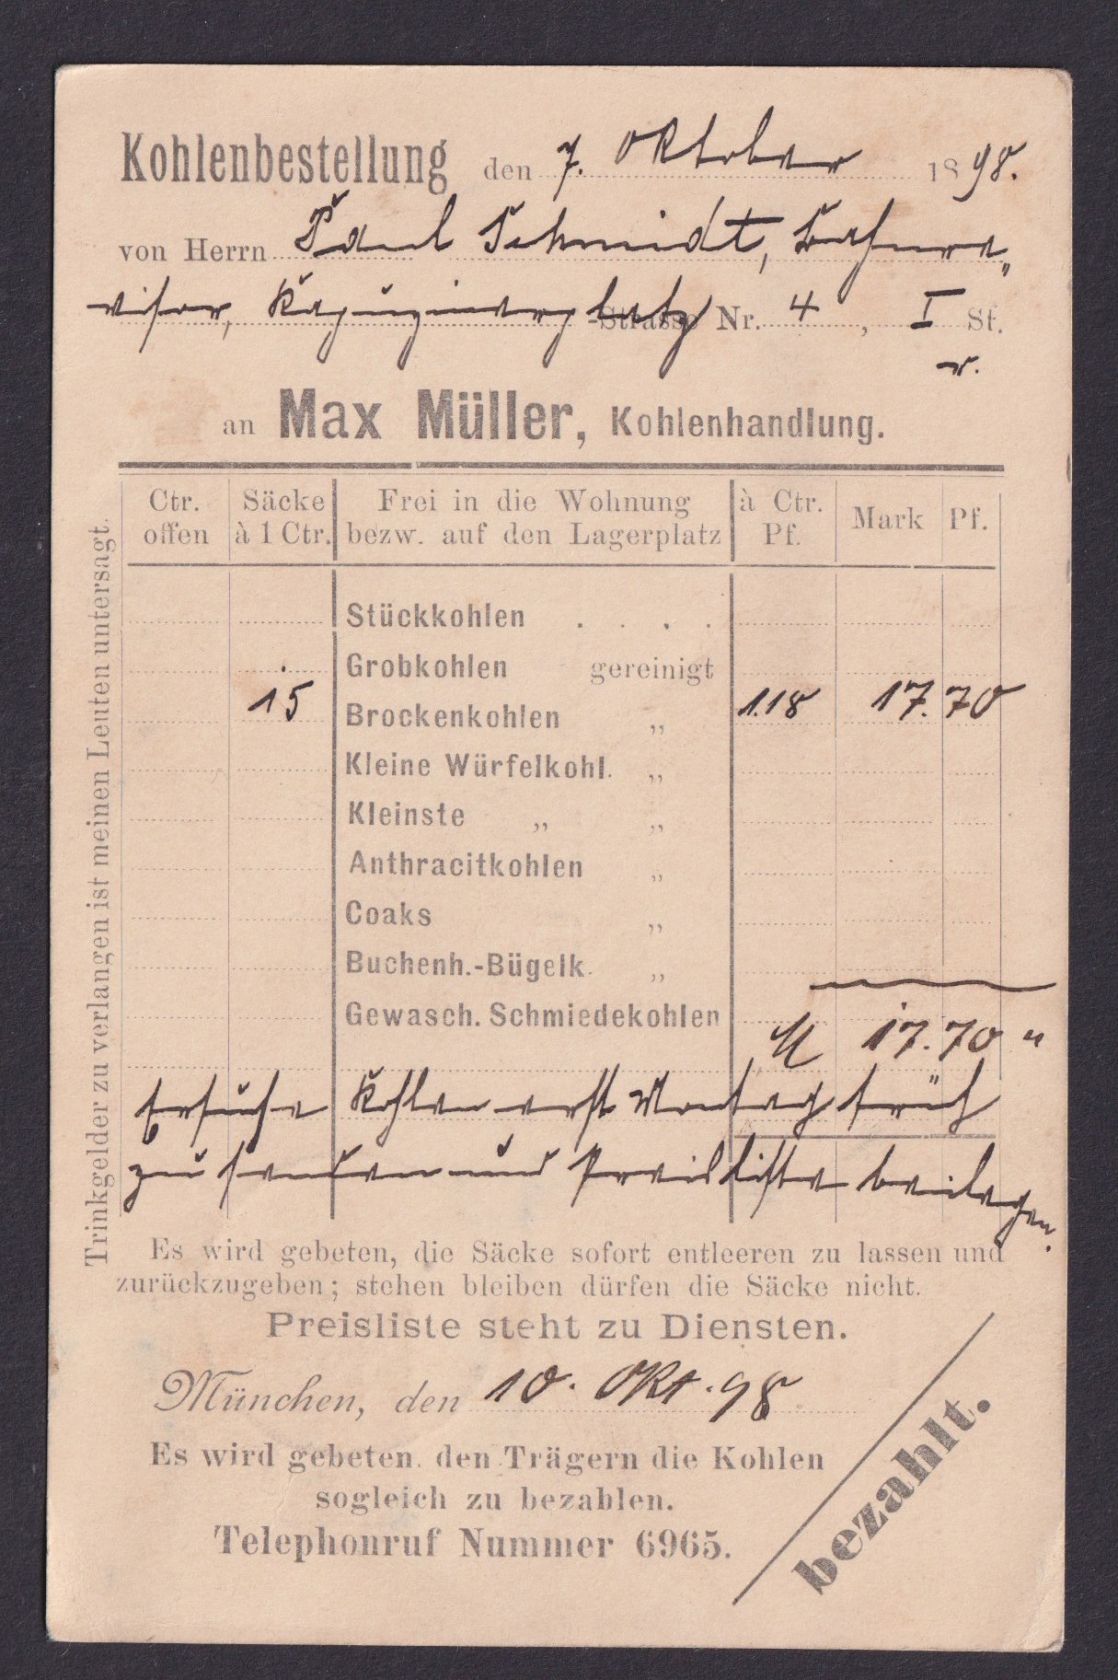 Kohlenbestellung den 7. Oktober 1898.
von Herrn Paul Schmidt,
revisor, Kapuzinerplatz -Strasse Nr. 4, I St.
r.
an Max Müller, Kohlenhandlung.
Ctr. offen Säcke à 1 Ctr. Frei in die Wohnung bezw. auf den Lagerplatz à Ctr. Pf. Mark Pf.
Stückkohlen . . . .
Grobkohlen gereinigt
15 Brockenkohlen „ 1.18 17.70
Kleine Würfelkohl. „
Kleinste „ „
Anthracitkohlen „
Coaks „
Buchenh.-Bügelk. „
Gewasch. Schmiedekohlen
M 17.70 "
Ersuche Kohlen erst Montag früh
zu senden und Preisliste beilegen.
Trinkgelder zu verlangen ist meinen Leuten untersagt.
Es wird gebeten, die Säcke sofort entleeren zu lassen und
zurückzugeben; stehen bleiben dürfen die Säcke nicht.
Preisliste steht zu Diensten.
München, den 10. Okt. 98
Es wird gebeten, den Trägern die Kohlen
sogleich zu bezahlen.
Telephonruf Nummer 6965.
bezahlt.